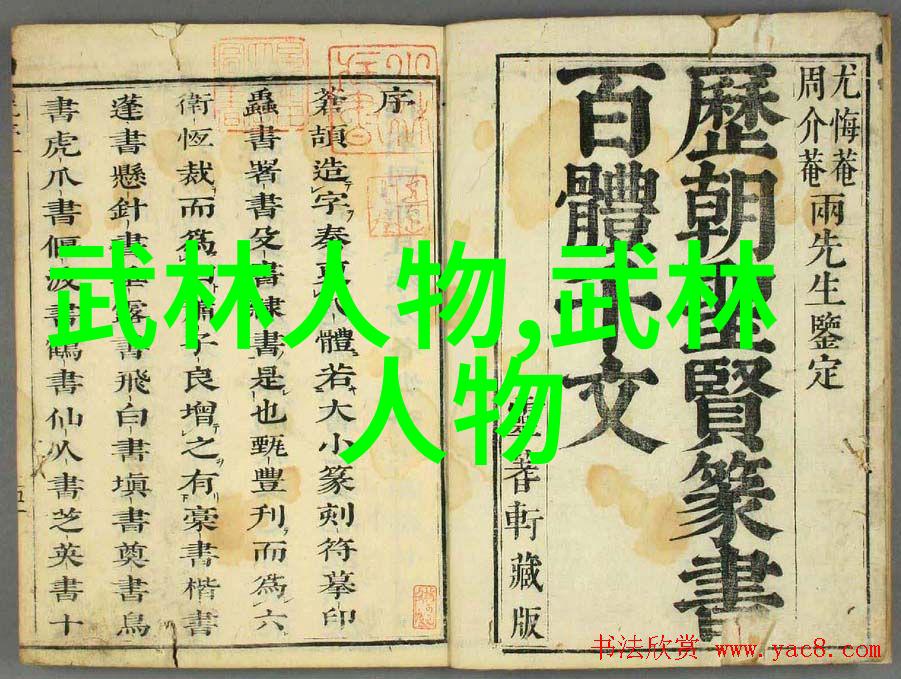 尤悔菴
周介菴
兩先生鑒定
歷朝聖賢篆書
百體千文
軒藏版
序
蒼頡造字秦八體若大小篆刻符摹印
蟲書署書殳書隸書是也甄豐刊而為六
衛恆裁而為蕭子良增之有稾書楷書
蓬書懸針書垂露書飛白書塡書奠書鳥
書虎爪書偃波書鶴書仙人書芝英書十
武林人物,武林
人物
书法欣赏 www.yac8.com